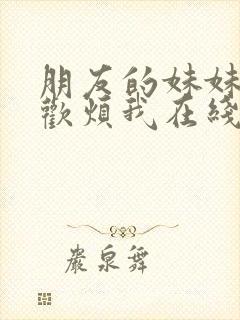 朋友的妹妹
歡煩我在綫
嚴泉舞